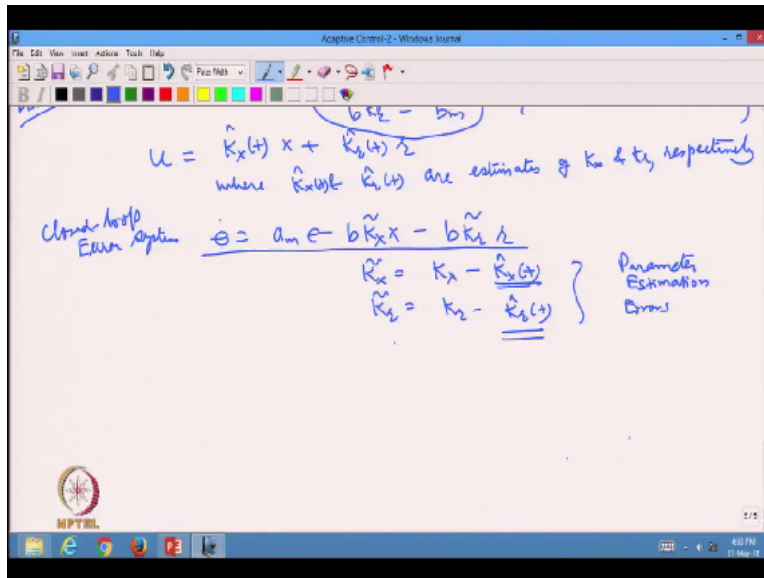 Adaptive Control-2 - Windows Journal
File Edit View Insert Actions Tools Help
Page Width
B I
b k_r - b_m
u = k̂_x(t) x + k̂_r(t) r
where k̂_x(t) & k̂_r(t) are estimates of k_x & k_r respectively
Closed-loop
Error System ė = a_m e - b k̃_x x - b k̃_r r
k̃_x = k_x - k̂_x(t) } Parameter
Estimation
k̃_r = k_r - k̂_r(t) Errors
NPTEL
5/5
4:03 PM
31-May-18